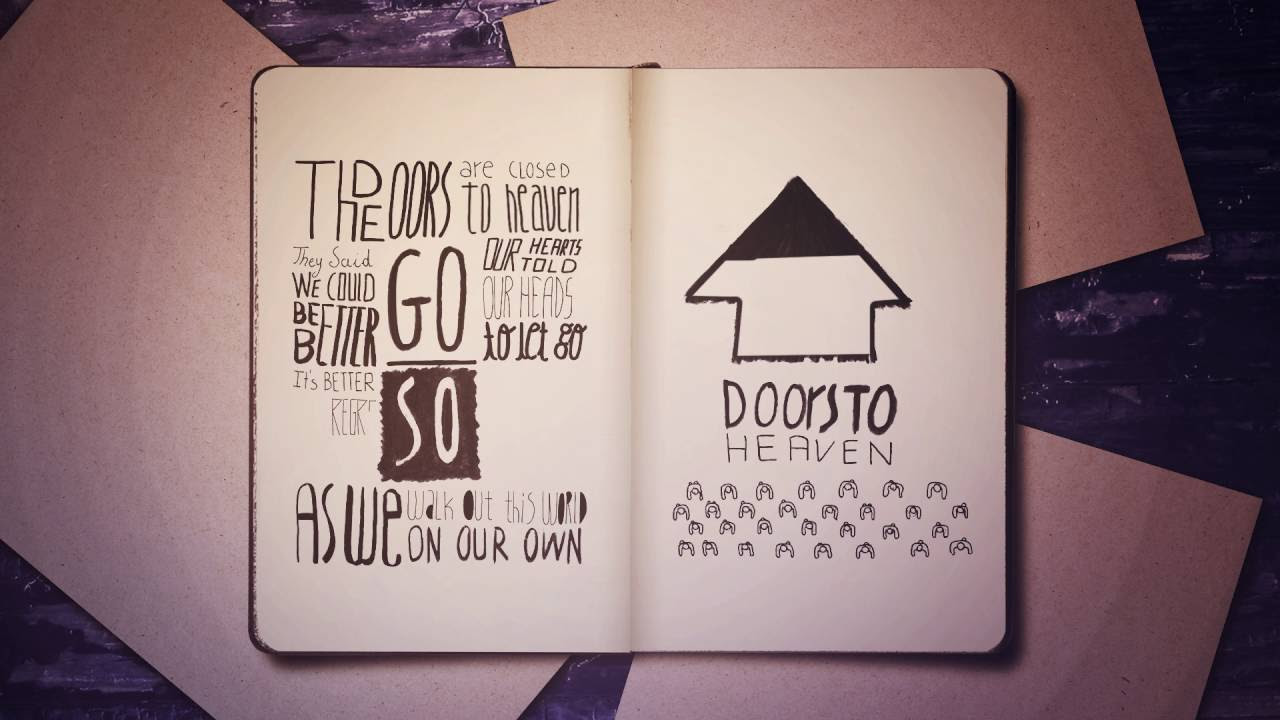 THE DOORS are CLOSED
to heaven
They Said
WE COULD
BE
BETTER
GO
OUR HEARTS
TOLD
OUR HEADS
to let go
It's BETTER
SO
AS WE walk out this WORLD
ON OUR OWN
DOORS TO
HEAVEN